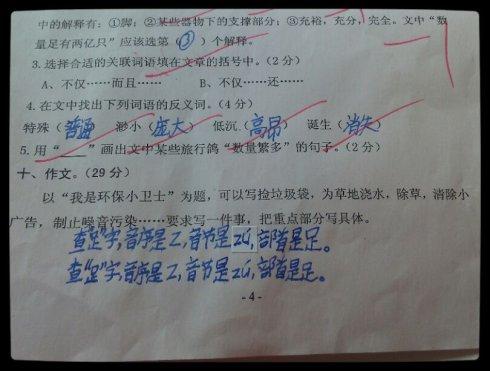 中的解释有：①脚；②某些器物下的支撑部分；③充裕，充分，完全。文中“数
量足有两亿只”应该选第（③）个解释。
3. 选择合适的关联词语填在文章的括号中。（2分）
A、不仅……而且……　　B、不仅……还……
4. 在文中找出下列词语的反义词。（4分）
特殊（普通）　渺小（庞大）　低沉（高昂）　诞生（消失）
5. 用“____”画出文中某些旅行鸽“数量繁多”的句子。（2分）
十、作文。（29分）
以“我是环保小卫士”为题，可以写捡垃圾袋，为草地浇水，除草，清除小
广告，制止噪音污染……要求写一件事，把重点部分写具体。
查“足”字，音序是Z，音节是zú，部首是足。
查“足”字，音序是Z，音节是zú，部首是足。
- 4 -